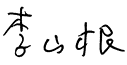 李山根